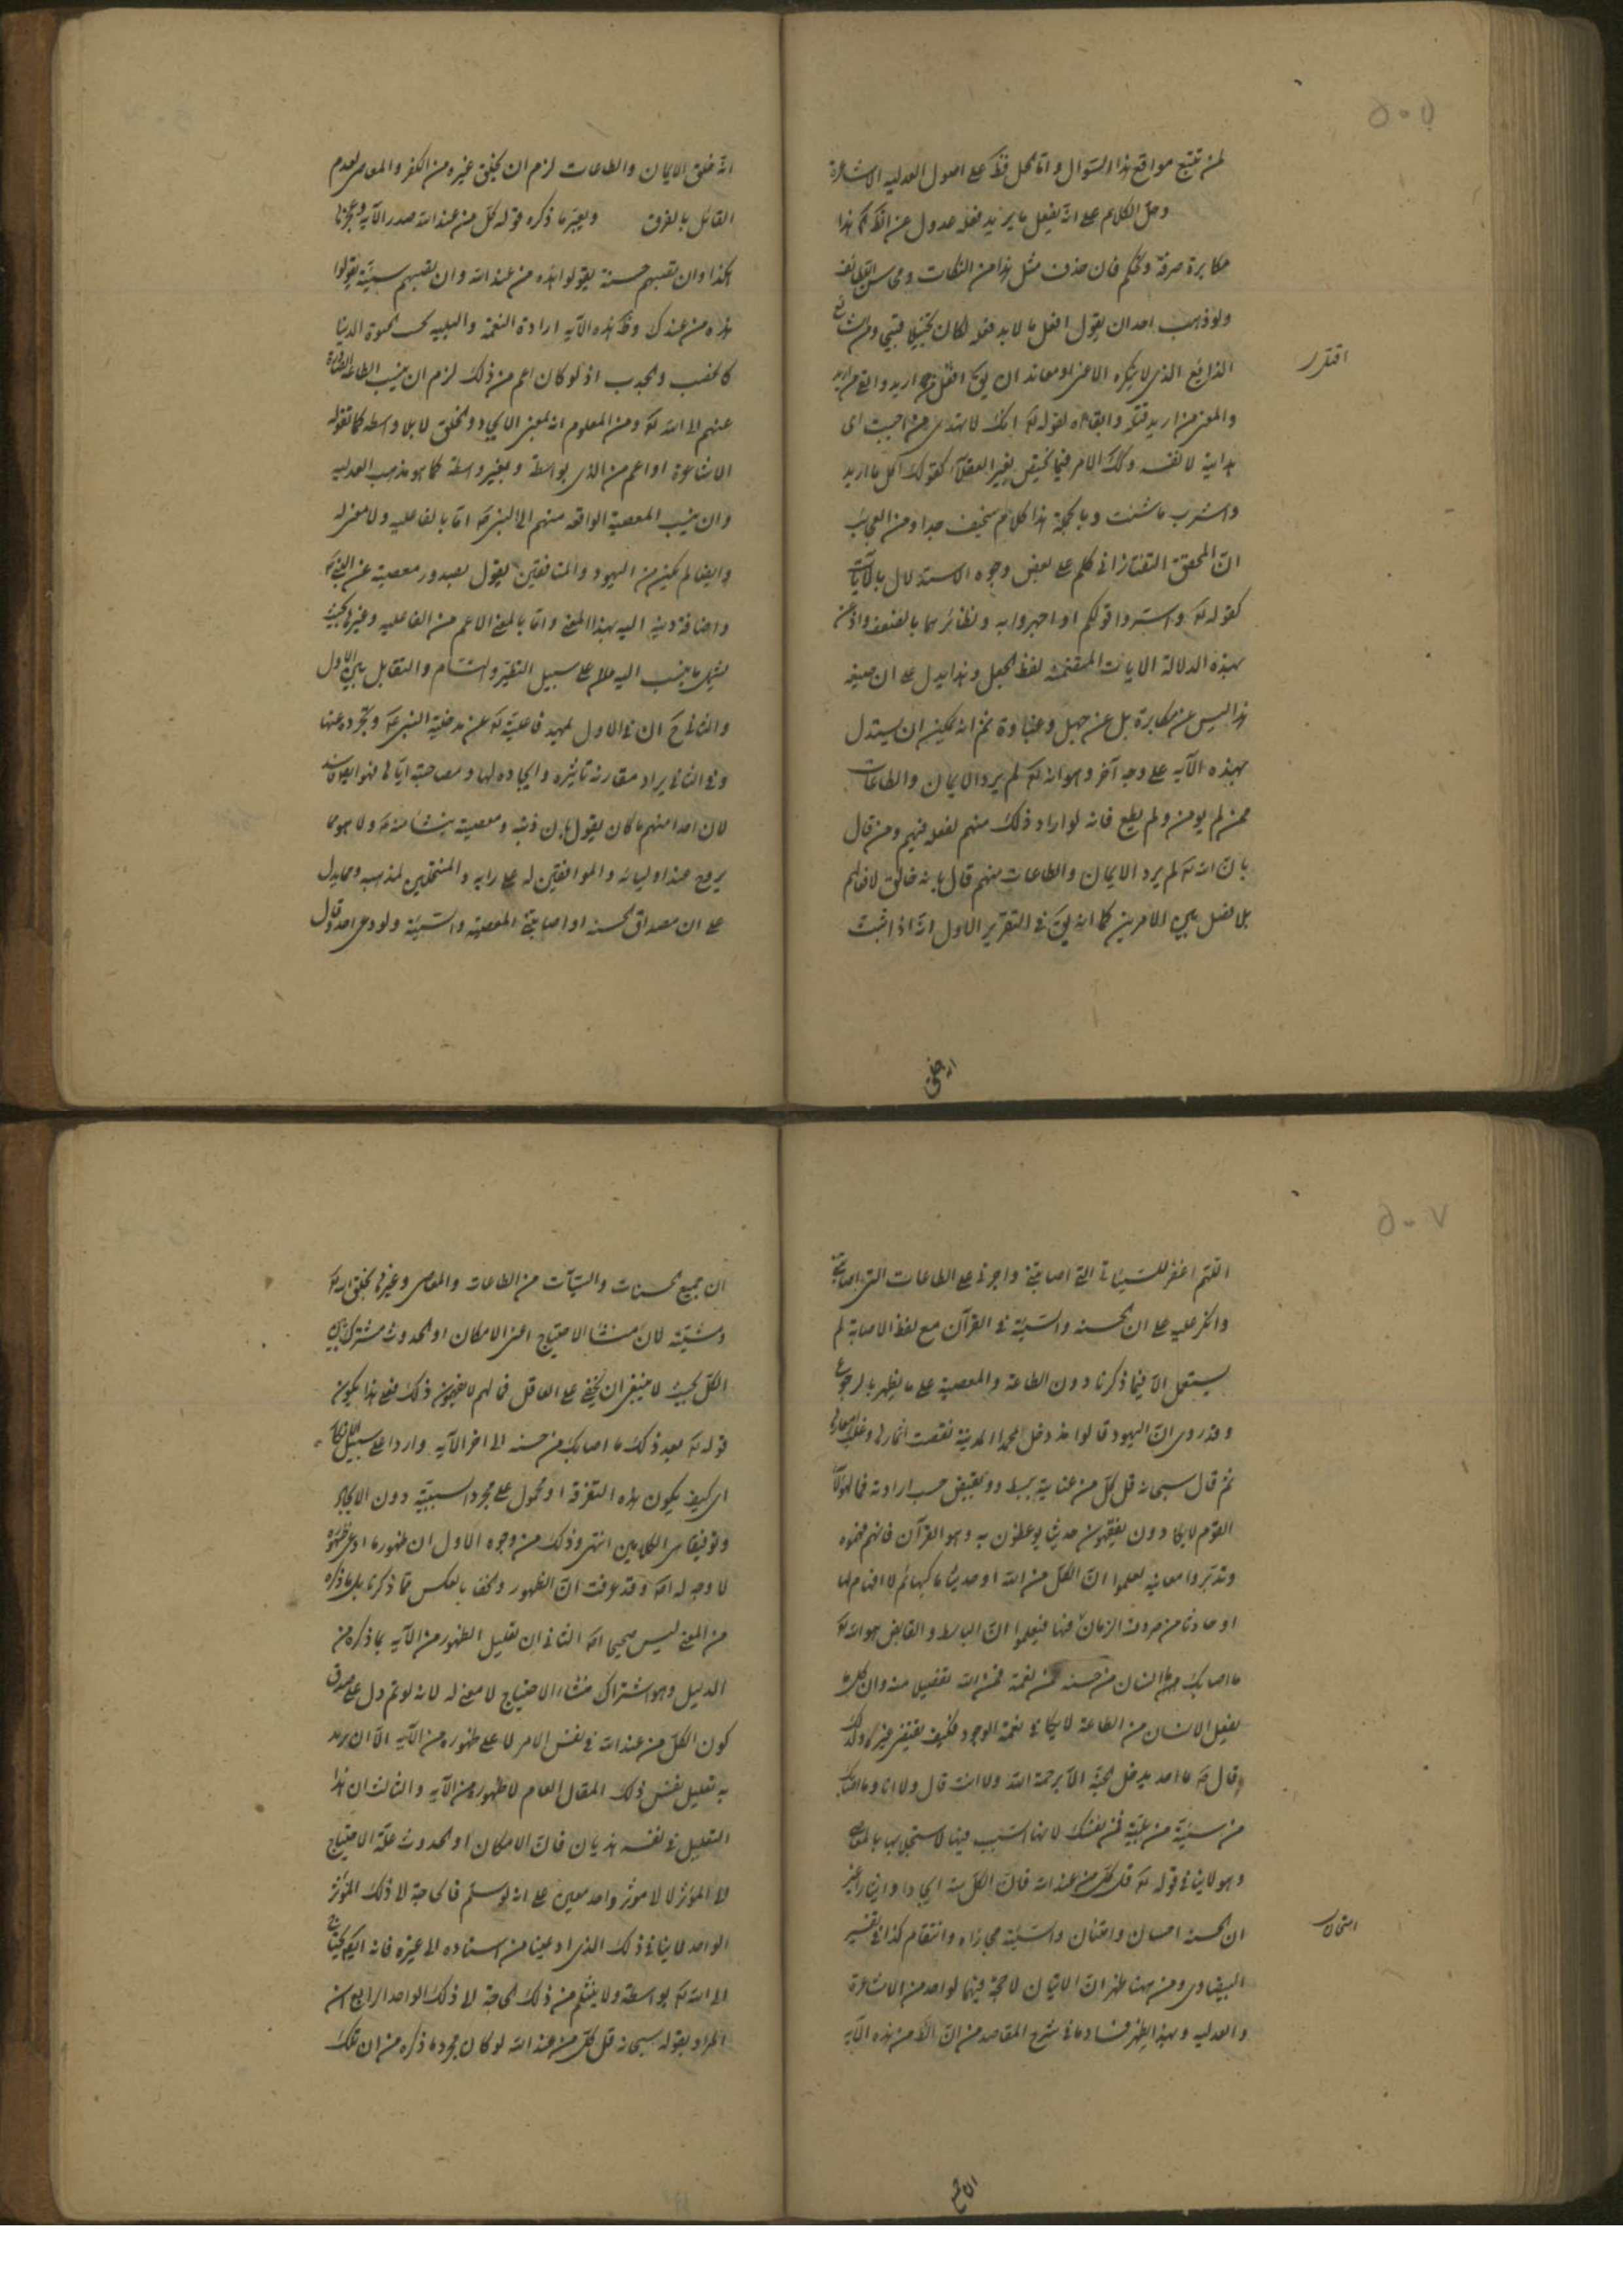 ٥٠٥
لمن تتبع مواقع هذا السؤال واما الحمل فظ على اصول العدليه الاشاعرة
وحمل الكلام على انه يفعل ما يريد فعله عدول عن الظ كم هذا
مكابرة صرفة وتحكم فان حذف مثل هذا من النكات ومحاسن اللطائف
ولو ذهب احد ان يقول افعل ما لابد فعله لكان
الذايع الذي لا ينكره الا غبي او معاند ان يق اقتل من اريد
اقتدر
والمعنى من اريد قتله وابقاءه لقوله تع انك لا تهدي من احببت اى
هدايته لا نفسه وذلك الامر فيما يختص بغير العقلاء كقولك آكل ما اريد
واشرب ما شئت وبالجملة هذا كلام سخيف جدا ومن العجائب
ان المحقق التفتازاني كلم على بعض وجوه الاستدلال بالآيات
كقوله تع واسروا قولكم او اجهروا به ونظائرهما بالضعف
بهذه الدلالة الايات المتضمنه لفظ الجعل وهذا يدل على ان صنيعه
هذا ليس عن مكابرة بل عن جهل وغباوة ثم انه يمكن ان يستدل
بهذه الآيه على وجه آخر وهو انه تع لم يرد الايمان والطاعات
ممن لم يؤمن ولم يطع فانه لو اراد ذلك منهم لفعله فيهم ومن قال
بان الله تع لم يرد الايمان والطاعات منهم قال بانه خالق لافعالهم
بلا فصل بين الامرين كما انه يق في التقرير الاول انه اذا ثبت
انه خلق
انه خلق الايمان والطاعات لزم ان يخلق غيره من الكفر والمعاصي لعدم
القائل بالفرق ويعتبر ما ذكره قوله كل من عند الله صدر الآيه
هكذا وان تصبهم حسنة يقولوا هذه من عند الله وان تصبهم سيئة يقولوا
هذه من عندك وظ هذه الآيه ارادة النعمة والبليه بحسب الحيوة الدنيا
كالخصب والجدب اذ لو كان اعم من ذلك لزم ان ينسب الطاعة الصادرة
عنهم الى الله تع ومن المعلوم انه بمعنى الايجاد والخلق لا بلا واسطه كما تقوله
الاشاعرة او اعم من الذي بواسطة وبغير واسطة كما هو مذهب العدليه
وان ينسب المعصية الواقعة منهم الى النبي ص اما بالفاعليه ولا معنى له
وايضا لم يكن من اليهود والمنافقين يقول بصدور معصية عن النبي ص
واضافة دينه اليه بهذا المعنى واما بالمعنى الاعم من الفاعليه وغيرها بحيث
يشمل ما ينسب اليه على سبيل التطير والتشام والتقابل بين الاول
والثاني ح ان في الاول تمهيد فاعليته تع عن مدخلية النبي ص وتجرده عنها
وفي الثاني يراد مقارنة تاثيره وايجاده لها ومصاحبته اياها فهو ايضا فاسد
لان احدا منهم ما كان يقول بان ذنبه ومعصيته ينشا منه ص ولا هو مما
يروج عند اوليائه والموافقين له على رايه والمنتحلين لمذهبه ومما يدل
على ان مصداق الحسنه او اصابتني المعصية والسيئة ولو دعى احد وقال
٥٠٧
اللهم اغفر للسيئات التي اصابتني واجرني على الطاعات التي اصابتني
وانكر عليه على ان الحسنه والسيئة في القرآن مع لفظ الاصابة لم
يستعمل الا فيما ذكرنا دون الطاعة والمعصية على ما يظهر بالرجوع
وقد روى ان اليهود قالوا منذ دخل محمد المدينة نقصت اثمارها وغلت اسعارها
ثم قال سبحانه قل كل من عنده يبسط ويقبض حسب ارادته فما لهؤلاء
القوم لا يكادون يفقهون حديثا يوعظون به وهو القرآن فانهم لو فهموه
وتدبروا معانيه لعلموا ان الكل من الله او حديثا ما كبهائم لا افهام لها
او حادثا من صروف الزمان فيها فيعلموا ان الباسط والقابض هو الله تع
ما اصابك يا انسان من حسنه من نعمة فمن الله تفضلا منه وان كل ما
يفعل الانسان من الطاعة لا يكافى نعمة الوجود فكيف يقتضي غيره ولذلك
قال ص ما احد يدخل الجنة الا برحمة الله ولا انت قال ولا انا وما اصابك
من سيئة من بلية فمن نفسك لانها السبب فيها لاستجلابها بالمعاصي
وهو لا ينافي قوله تع قل كل من عند الله فان الكل منه ايجادا وايصالا غير
ان الحسنه احسان وامتنان والسيئة مجازاه وانتقام كذا في تفسير
امتحان
البيضاوي ومن ههنا ظهر ان الآيتان لا حجة فيهما لواحد من الاشاعرة
والعدليه وبهذا يظهر فساد ما في شرح المقاصد من ان الظ من هذه الآيه
ان جميع
ان جميع الحسنات والسيآت من الطاعات والمعاصي وغيرها بخلق الله تع
ومشيته لان منشأ الاحتياج اعنى الامكان او الحدوث مشترك بين
الكل بحيث لا ينبغي ان يخفى على العاقل فما لهم لا يفقهون ذلك فعلى هذا يكون
قوله تع بعد ذلك ما اصابك من حسنه الى اخر الآيه واردا على سبيل الانكار
اى كيف يكون هذه التفرقة او محمول على مجرد السببيه دون الايجاد
وتوفيقا بين الكلامين انتهى وذلك من وجوه الاول ان ظهور ما ادعى ظهوره
لا وجه له اصلا وقد عرفت ان الظهور والخفا بالعكس مما ذكرنا بل ما ذكره
من المعنى ليس صحيحا اصلا الثاني ان تعليل الظهور من الآيه بما ذكره من
الدليل وهو اشتراك منشاء الاحتياج لا معنى له لانه لو تم دل على صدق
كون الكل من عند الله في نفس الامر لا على ظهوره من الآيه الا ان يريد
به تعليل نفس ذلك المقال العام لا ظهوره من الآيه والثالث ان هذا
التعليل في نفسه هذيان فان الامكان او الحدوث علة الاحتياج
الى المؤثر لا الى مؤثر واحد معين على انه لو سلم فالحاجة الى ذلك المؤثر
الواحد لا ينافي ذلك الذي ادعينا من اسناده الى غيره فانه ايضا يحتاج
الى الله تع بواسطة ولا ينثلم من ذلك الحاجة الى ذلك الواحد الرابع ان
المراد بقوله سبحانه قل كل من عند الله لو كان مجرد ما ذكره من ان تلك